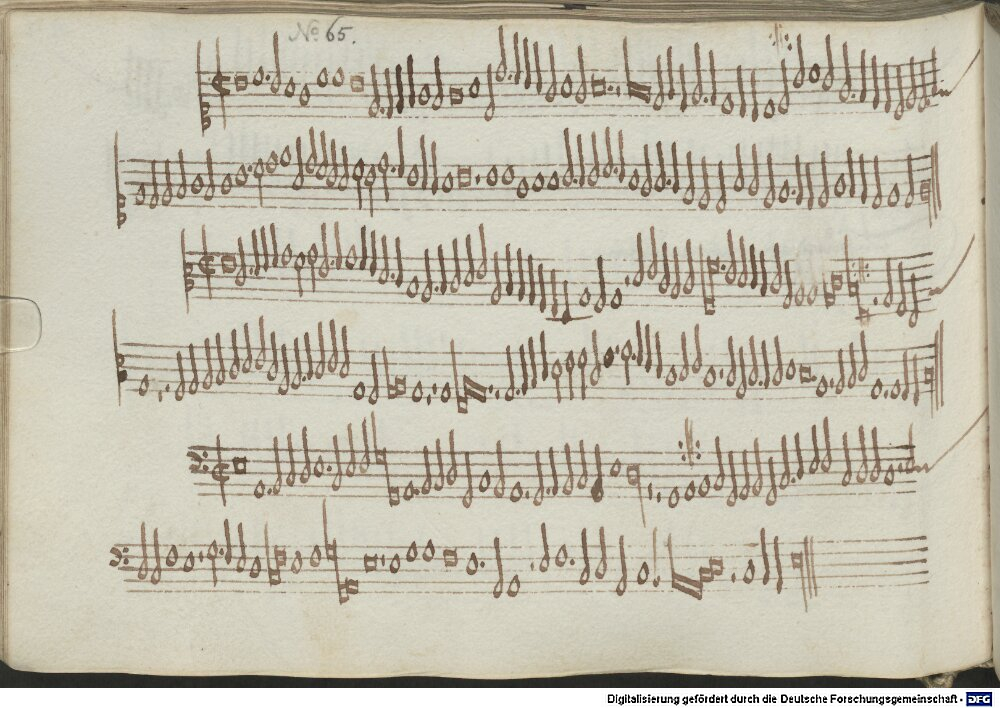 No 65.
Digitalisierung gefördert durch die Deutsche Forschungsgemeinschaft - DFG